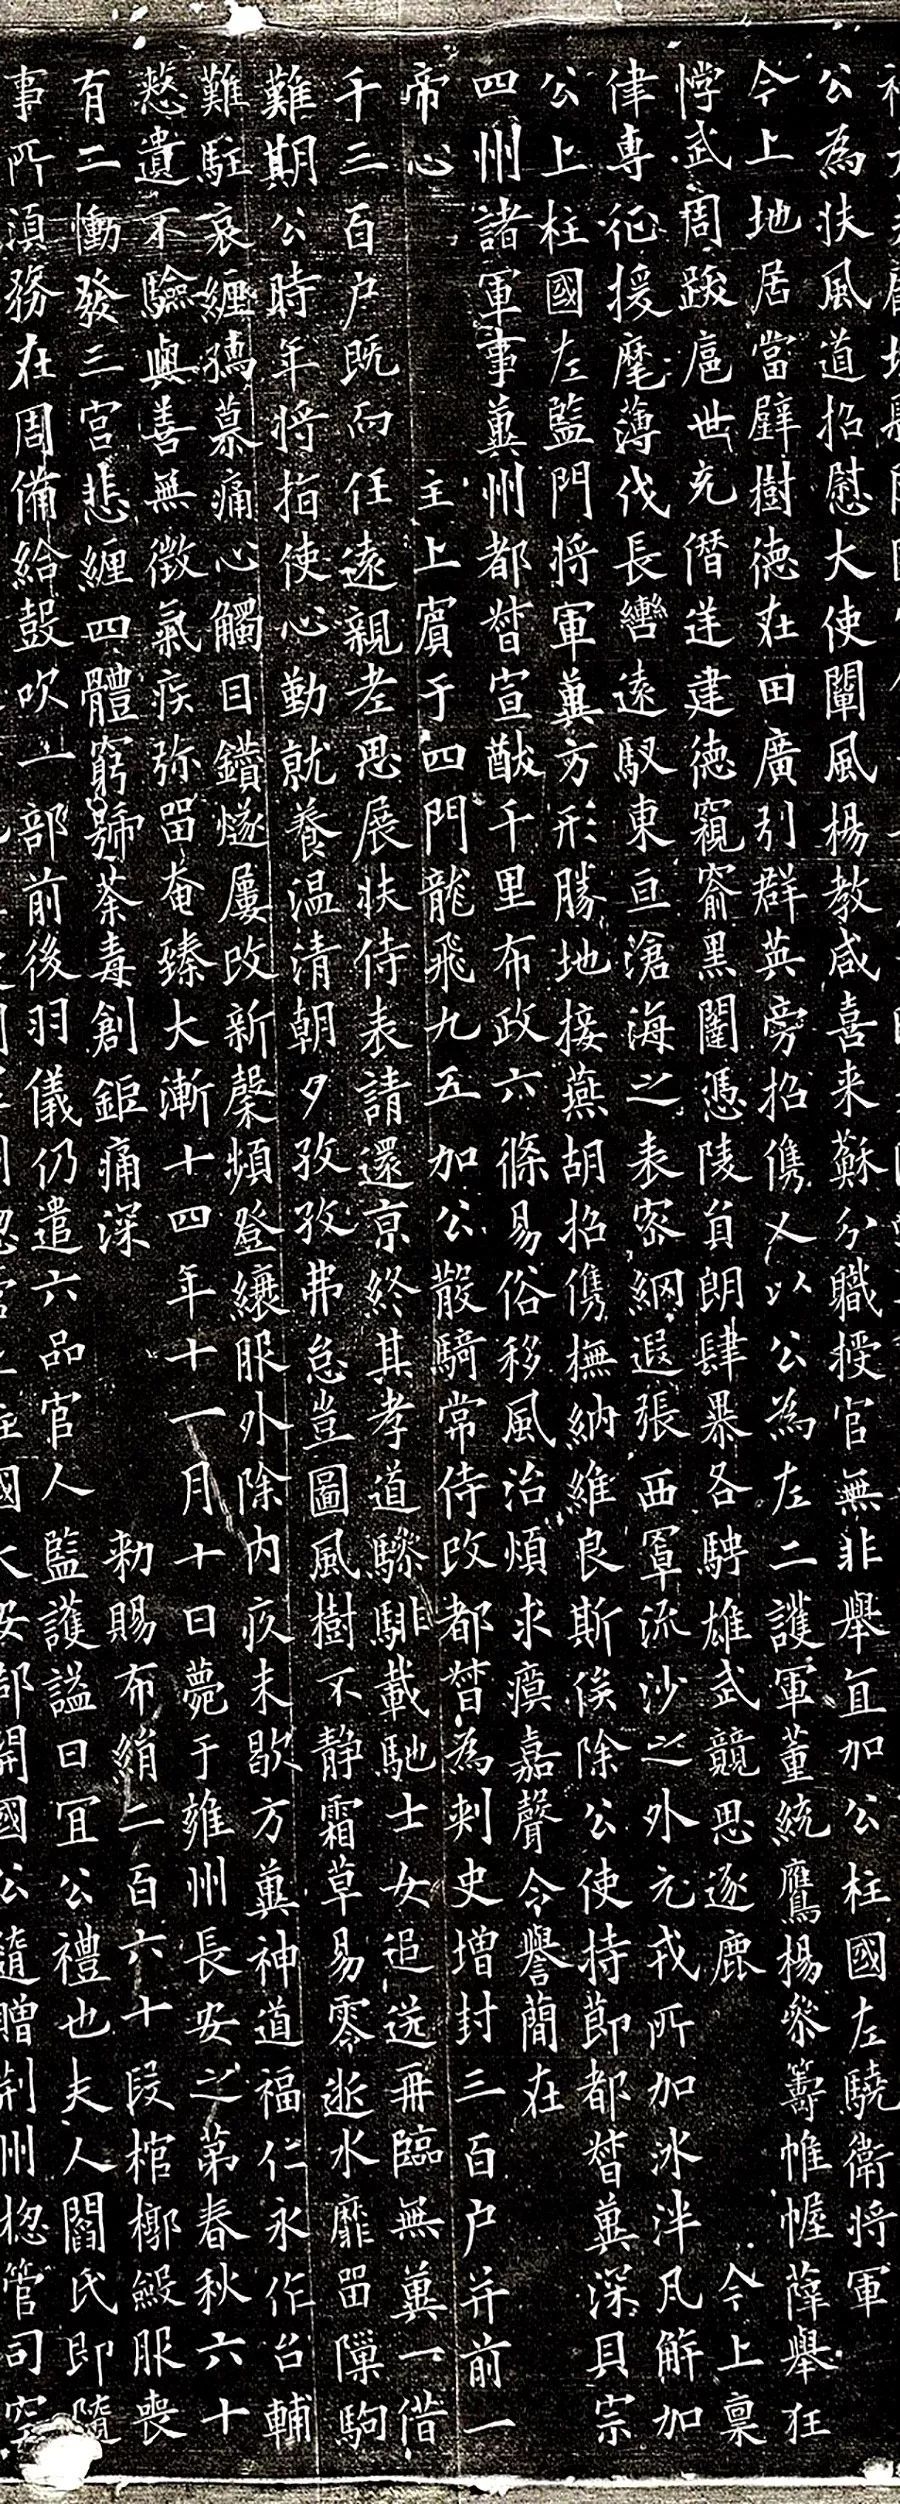 公為扶風道招慰大使闡風楊教咸喜来蘇分職授官無非舉直加公柱國左驍衛將軍
今上地居當璧樹德在田廣引群英旁招儁乂以公為左二護軍董統鷹楊叅籌帷幄薛舉狂
悖武周跋扈世充僭逆建德窺窬黑闥憑陵負朗肆暴各騁雄武競思逐鹿今上稟
律專征援麾薄伐長轡遠馭東亘滄海之表密網遐張西罩流沙之外元戎所加冰泮凡解加
公上柱國左監門將軍兾方形勝地接燕胡招儁撫納維良斯俟除公使持節都督兾深貝宗
四州諸軍事兾州都督宣猷千里布政六條易俗移風治煩求瘼嘉聲令譽簡在
帝心主上賓于四門龍飛九五加公散騎常侍改都督為刺史增封三百户并前一
千三百户既向任遠親老思展扶侍表請還京終其孝道驂騑載馳士女追送再臨無兾一借
難期公時年將指使心勤就養温清朝夕孜孜弗怠豈圖風樹不靜霜草易零逝水靡留隟駒
難駐哀纏孺慕痛心觸目鑽燧屢改新縏頻登纕服外除内疚未歇方兾神道福仁永作台輔
憖遺不驗與善無徵氣疾弥留奄臻大漸十四年十一月十日薨于雍州長安之第春秋六十
有二慟發三宮悲纏四體窮號荼毒創鉅痛深勑賜布絹二百六十段棺槨殹服喪
事所湏務在周備給鼓吹一部前後羽儀仍遣六品官人監護謚曰宜公禮也夫人閻氏即隋
國大安郡開國公隨贈荆州揔管司空